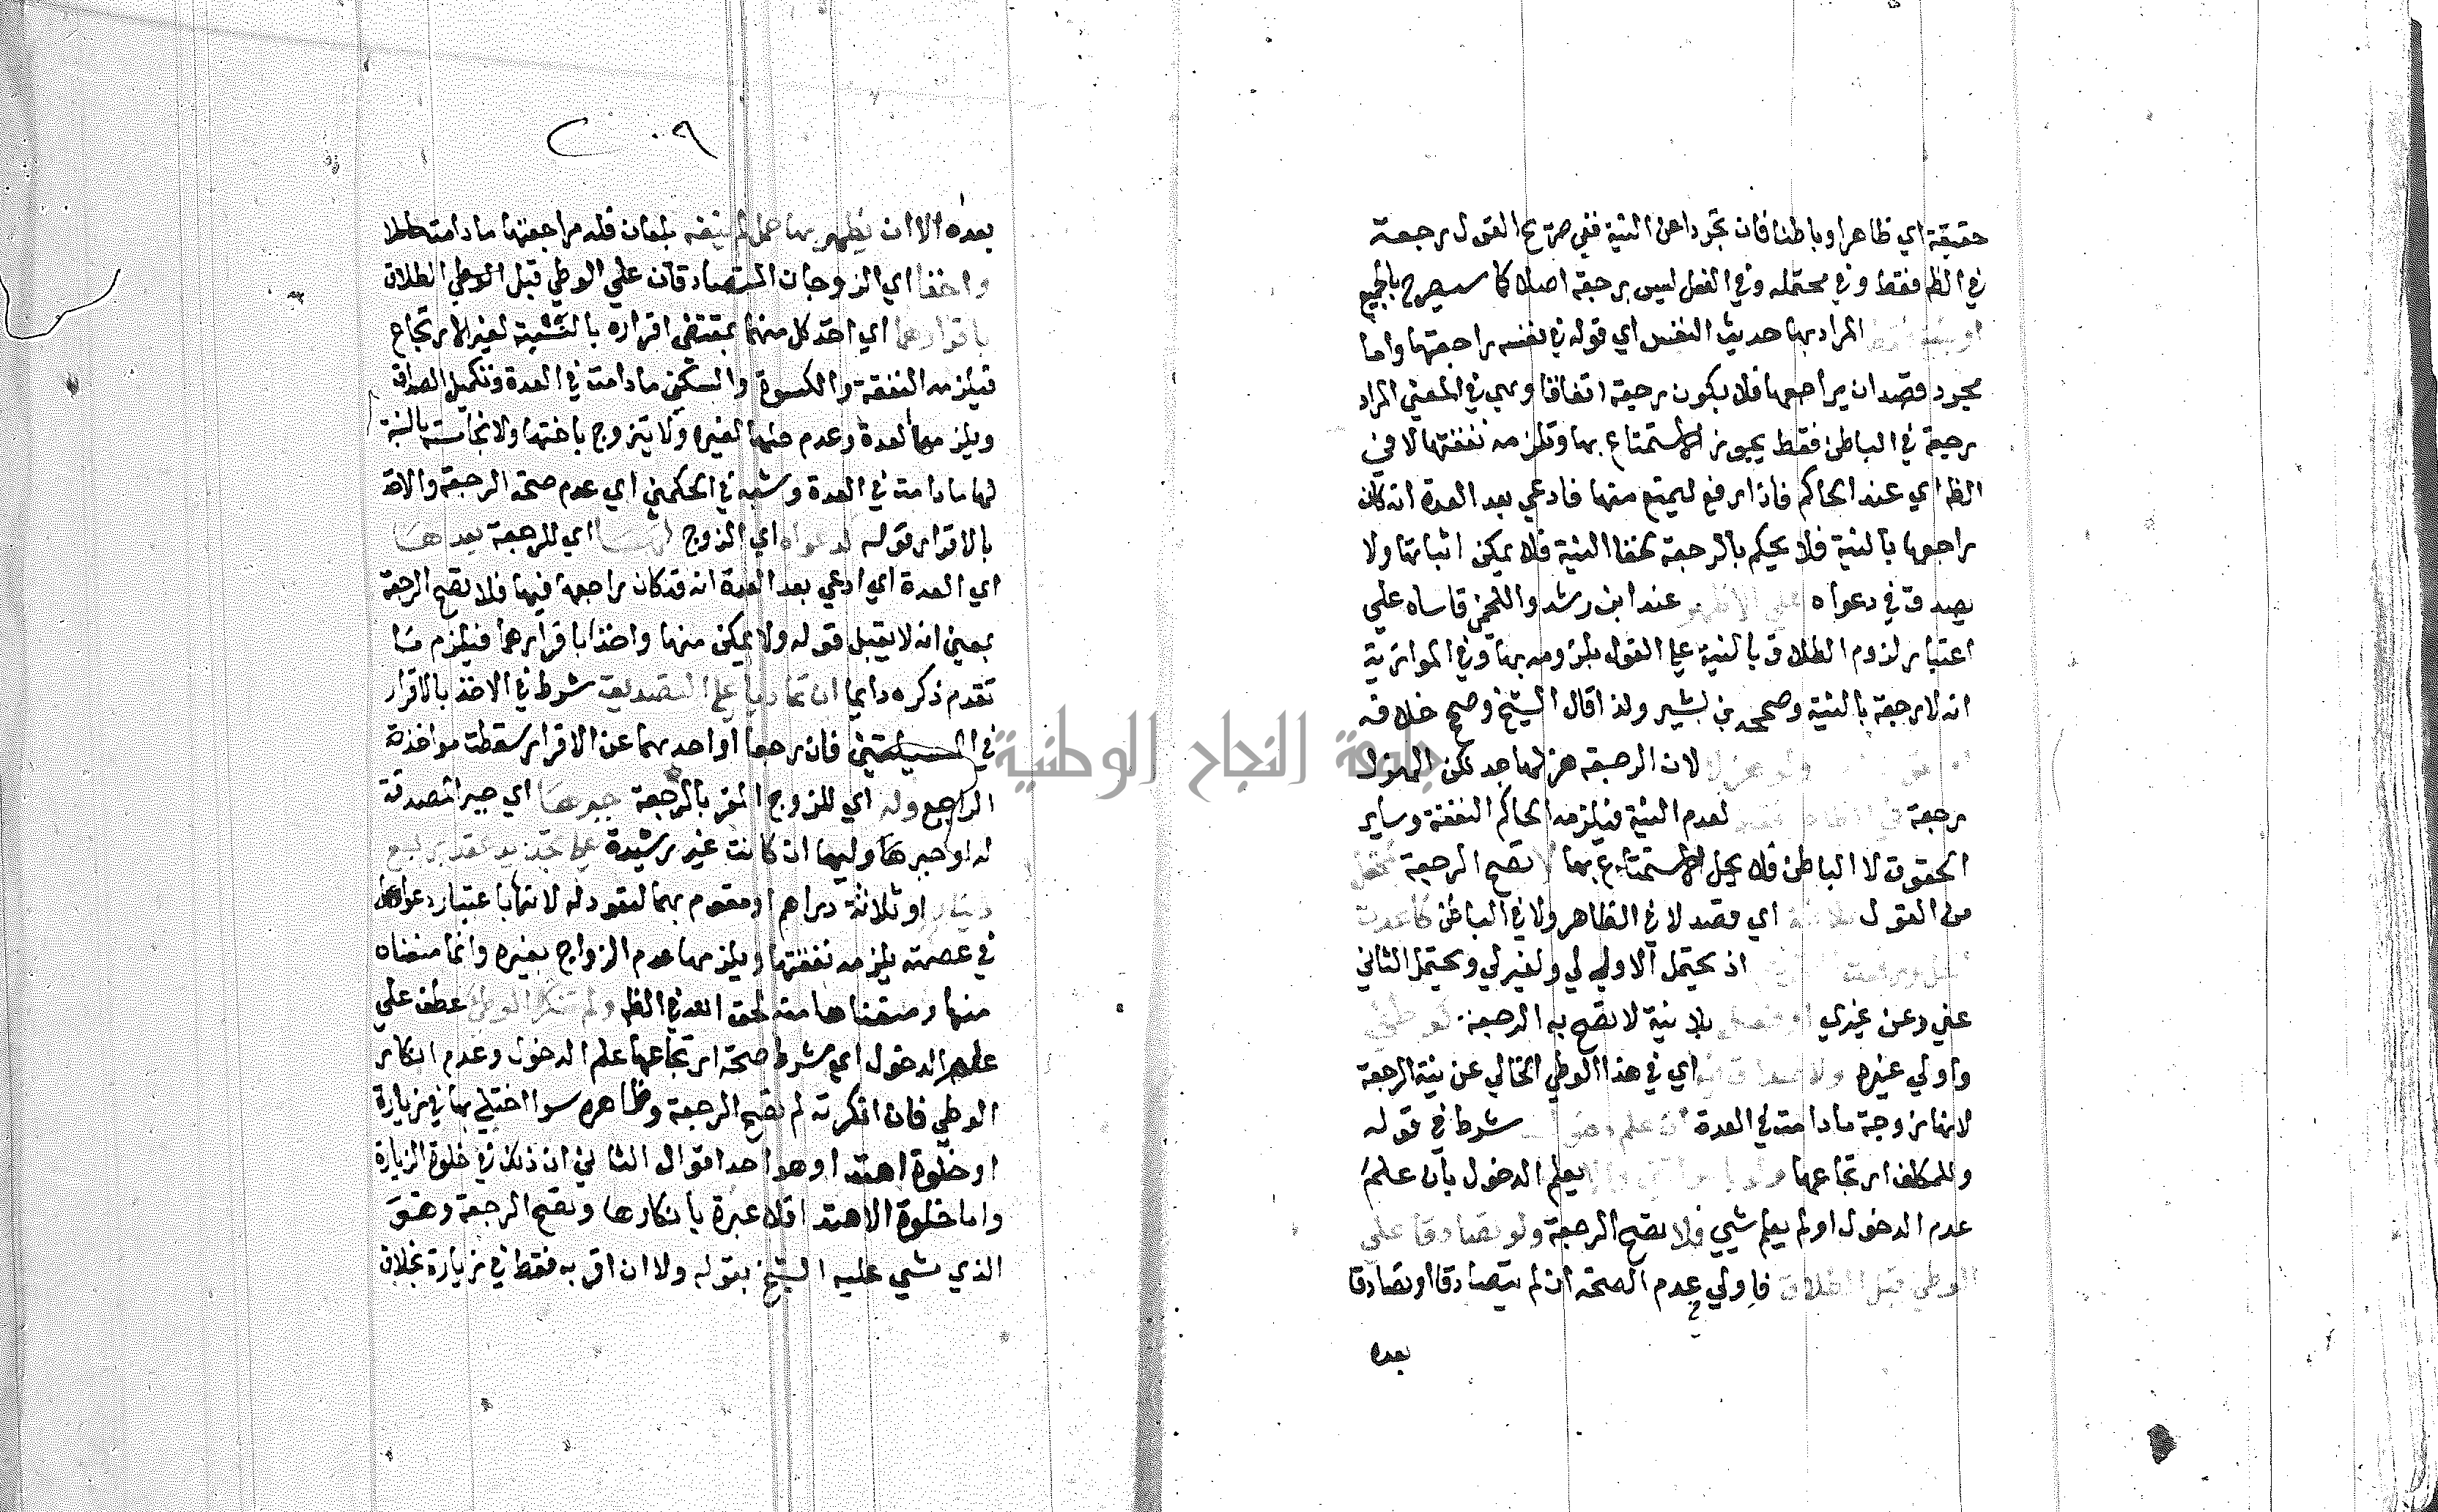 حقيقة اي ظاهرا وباطنا فان تجردا عن النية ففي صريح القول رجعة
في الظ فقط وفي محتمله وفي الفعل ليس برجعة اصلا كما سيصرح بالجميع
او بنية فقط المراد بها حديث النفس اي قوله في نفسه راجعتها واما
مجرد قصد ان يراجعها فلا يكون رجعة اتفاقا وهي في المعني المراد
رجعة في الباطن فقط يجوز الاستمتاع بها وتلزمه نفقتها لا في
الظ اي عند الحاكم فاذا رفع ليمنع منها فادعي بعد العدة انه كان
راجعها بالنية فلا يحكم بالرجعة لخفا النية فلا يمكن اثباتها ولا
يصدق في دعواه علي الاظهر عند ابن رشد واللخمي قاساه علي
اعتبار لزوم الطلاق بالنية علي القول بلزومه بها وفي الموازية
انه لا رجعة بالنية وصححه بن بشير ولذا قال الشيخ وصحح خلافه
ولو هزلا لان الرجعة هزلها جد لكن الهزل
رجعة في الظاهر فقط لعدم النية فيلزمه الحاكم النفقة وساير
الحقوق لا الباطن فلا يحل الاستمتاع بها لا تصح الرجعة بمحتمل
من القول بلا نية اي قصد لا في الظاهر ولا في الباطن كاعدت
الحل ورفعت التحريم اذ يحتمل الاول لي ولغيري ويحتمل الثاني
عني وعن غيري او فعل بلا نية لا تصح به الرجعة كوطئ
واولي غيره ولا صداق فيه اي في هذا الوطي الخالي عن نية الرجعة
لانها زوجة ما دامت في العدة ان علم دخول شرط في قوله
وللمكلف ارتجاعها والا يعلم الدخول بان علم
عدم الدخول او لم يعلم شيي فلا تصح الرجعة ولو تصادقا علي
الوطي قبل الطلاق فاولي عدم الصحة ان لم يتصادقا او تصادقا
بعده
٢٠٩
بعده الا ان يظهر بها حمل لم ينفه بلعان فله مراجعتها ما دامت حاملا
واخذا اي الزوجان المتصادقان علي الوطي قبل الطلاق
باقرارهما اي اخذ كل منهما بمقتضي اقراره بالنسبة لغير الارتجاع
فيلزمه النفقة والكسوة والسكني ما دامت في العدة وتكميل الصداق
ويلزمها العدة وعدم حلها لغيره ولا يتزوج باختها ولا بخامسة بالنسبة
لها ما دامت في العدة وشبه في الحكمين اي عدم صحة الرجعة والاخذ
بالاقرار قوله لدعواه اي الزوج لها اي للرجعة بعدها
اي العدة اي ادعي بعد العدة انه قد كان راجعها فيها فلا تصح الرجعة
بمعني انه لا يقبل قوله ولا يمكن منها واخذا باقرارهما فيلزم ما
تقدم ذكره دايما ان تماديا علي التصديق شرط في الاخذ بالاقرار
في المسيلتين فان رجعا او احدهما عن الاقرار سقطت مواخذة
الراجع وله اي للزوج المقر بالرجعة جبرها اي جبر المصدقة
له او جبرها وليها ان كانت غير رشيدة علي تجديد عقد بربع
دينار او ثلاثة دراهم او مقوم بهما لتعود له لانها باعتبار دعواها
في عصمته يلزمه نفقتها ويلزمها عدم الزواج بغيره وانما منعناه
منها ومنعناها منه لحق الله في الظ ولم تنكر الوطي عطف علي
علم الدخول اي شرط صحة ارتجاعها علم الدخول وعدم انكار
الوطي فان انكرته لم تصح الرجعة وظاهره سوا اختلي بها في زيارة
او خلوة اهتدا وهو احد اقوال الثاني ان ذلك في خلوة الزيارة
واما خلوة الاهتدا فلا عبرة بانكارها وتصح الرجعة وهو
الذي مشي عليه الشيخ بقوله ولا ان اقر به فقط في زيارة بخلاف
جامعة النجاح الوطنية